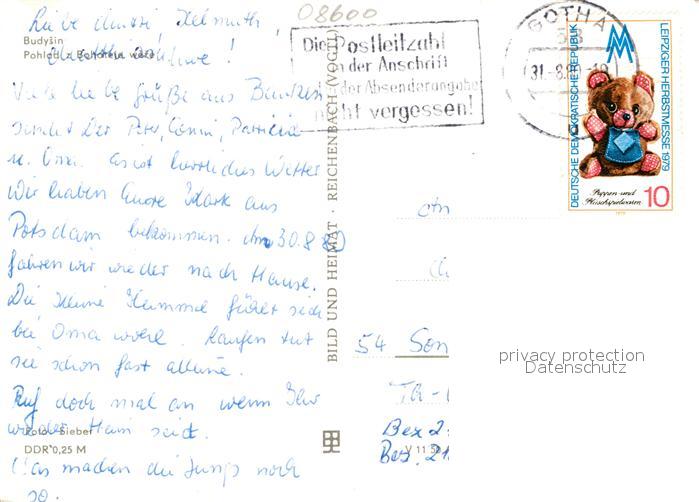 08600
Liebe Sussi, Helmuth,
Budyšin
Pohlad z Bohotej wěže
!
Die Postleitzahl
in der Anschrift
der Absenderangabe
nicht vergessen!
GOTHA
31.-8.
DEUTSCHE DEMOKRATISCHE REPUBLIK
LEIPZIGER HERBSTMESSE 1979
Puppen und
Plüschspielwaren
10
1979
Viele liebe Grüße aus Bautzen
sendet Der Peter, Conni, Patricia
u. Oma. Es ist herrliches Wetter
Wir haben Eure Karte aus
Potsdam bekommen. Am 30.8.
fahren wir wieder nach Hause.
Die kleine Hummel fühlt sich
bei Oma wohl. Laufen tut
sie schon fast alleine.
Ruft doch mal an wenn Ihr
wieder Heim seid.
Foto: Sieber
DDR 0,25 M
Was machen die Jungs noch
so.
BILD UND HEIMAT · REICHENBACH (VOGTL)
54 Son
Bez 2
Bez. 21
V 11 50
privacy protection
Datenschutz